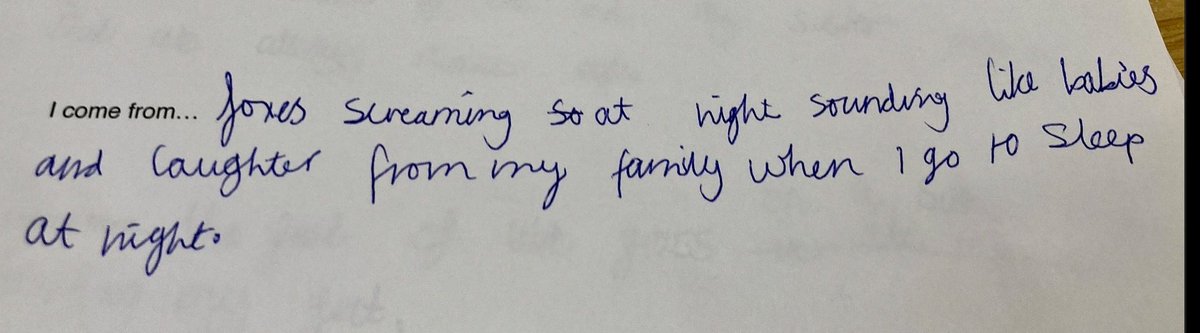 I come from... foxes screaming so at night sounding like babies
and laughter from my family when I go to sleep
at night.